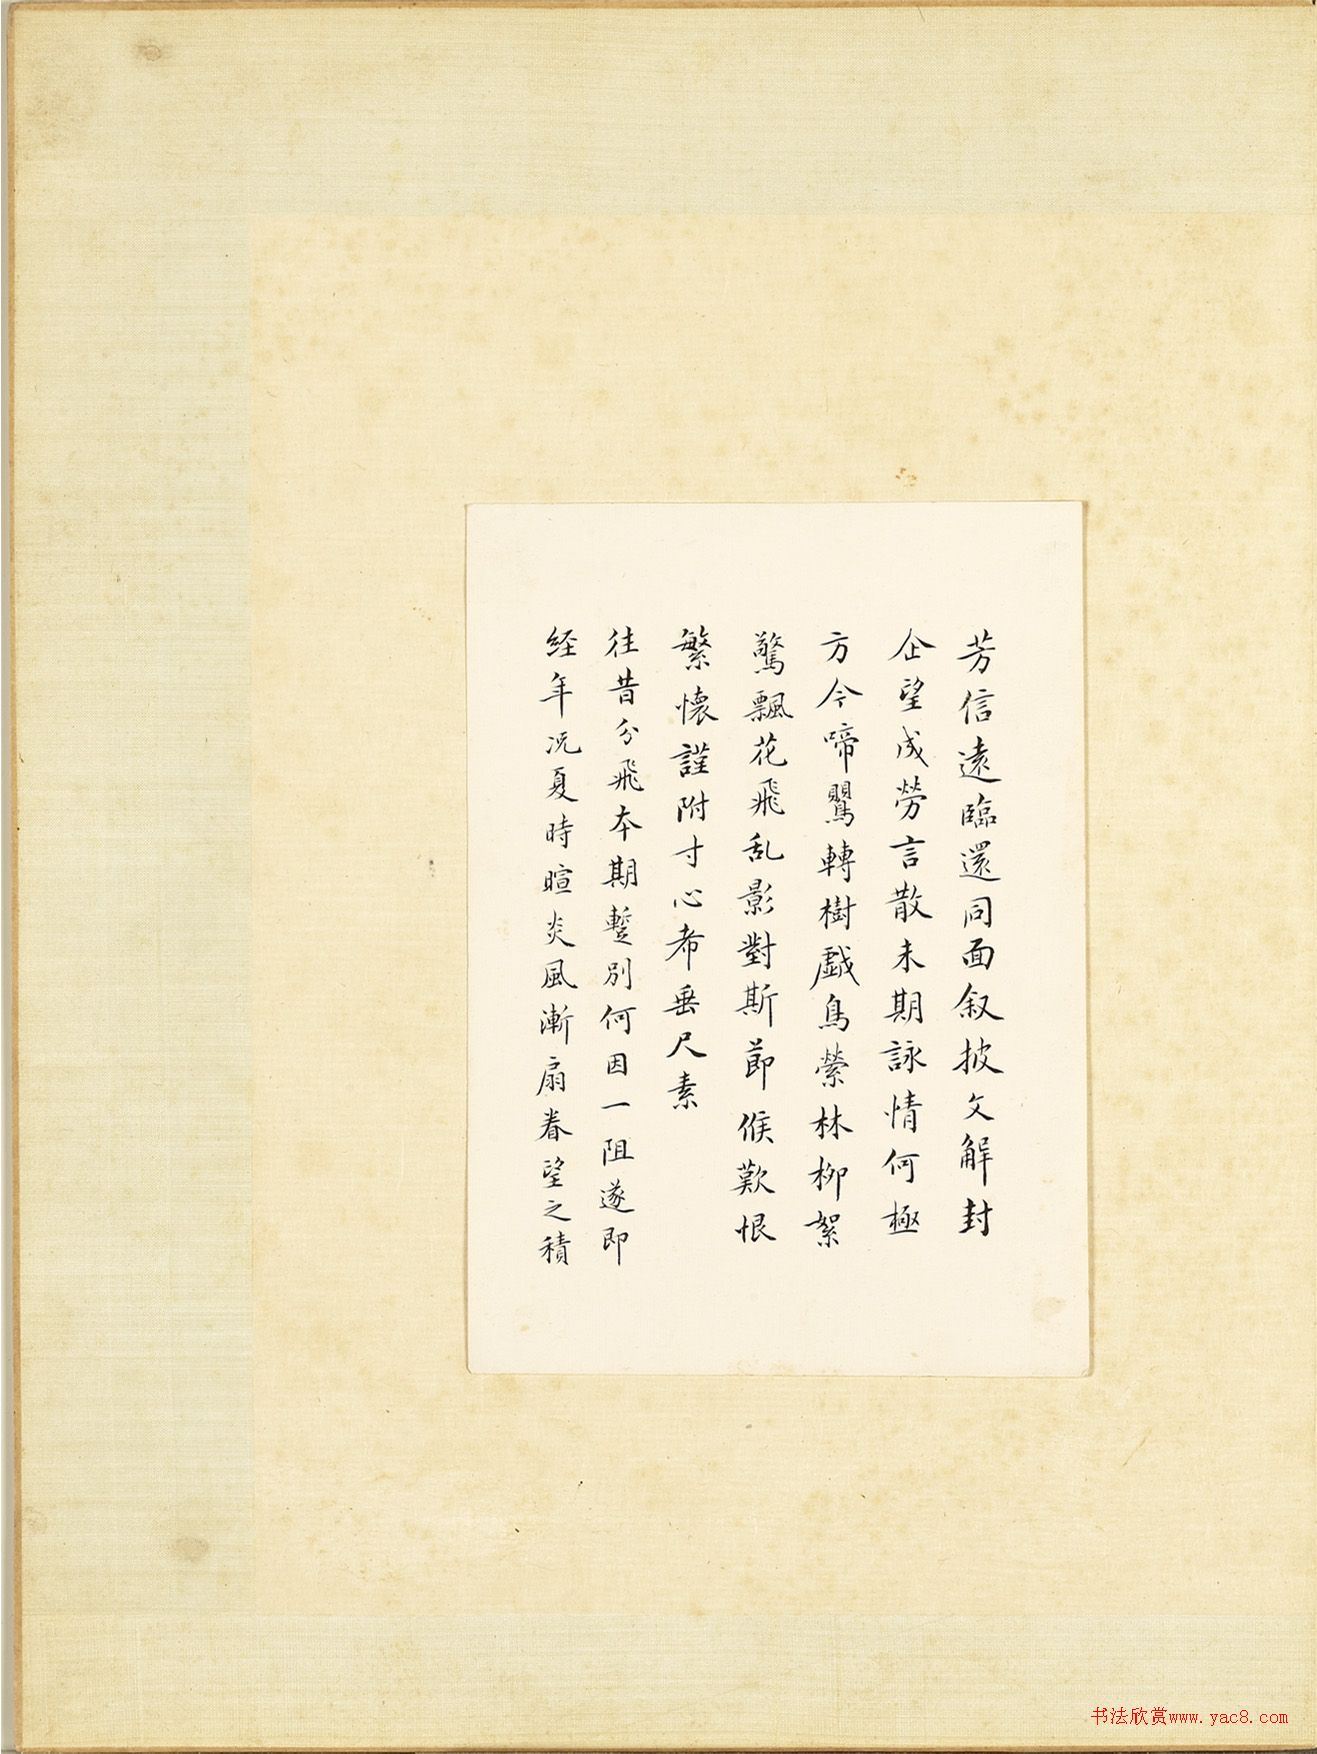 芳信遠臨還同面叙披文解封
企望成勞言散未期詠情何極
方今啼鸎轉樹戯鳥縈林柳絮
驚飄花飛乱影對斯節候歎恨
繁懐謹附寸心希垂尺素
往昔分飛本期蹔別何因一阻遂即
経年况夏時暄炎風漸扇眷望之積
书法欣赏www.yac8.com